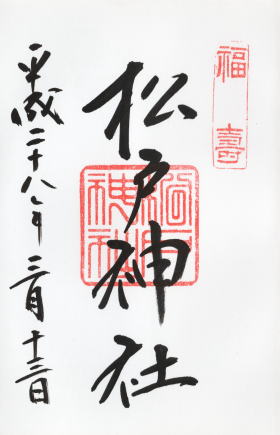 福壽
松戸神社
松戸神社
平成二十八年三月十三日